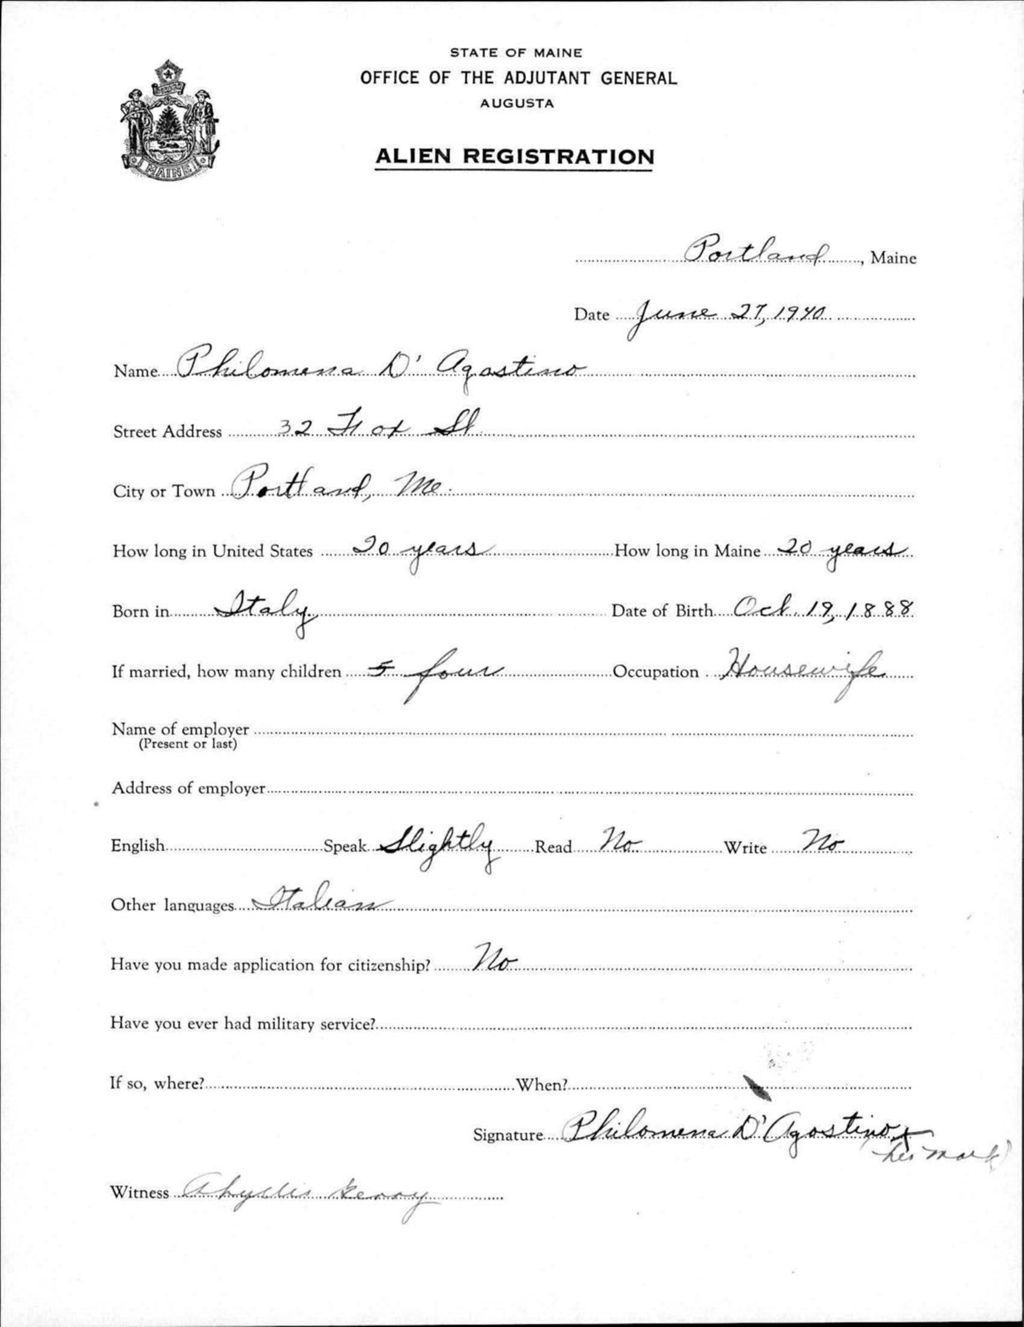 STATE OF MAINE
OFFICE OF THE ADJUTANT GENERAL
AUGUSTA
ALIEN REGISTRATION
MAINE
Portland, Maine
Date June 27, 1940
Name Philomena D'Agostino
Street Address 32 Fox St.
City or Town Portland, Me.
How long in United States 20 years How long in Maine 20 years
Born in Italy Date of Birth Oct. 19, 1888
If married, how many children 5 four Occupation Housewife
Name of employer
(Present or last)
Address of employer
English Speak Slightly Read No Write No
Other languages Italian
Have you made application for citizenship? No
Have you ever had military service?
If so, where? When?
Signature Philomena D'Agostino x
(her mark)
Witness Phyllis